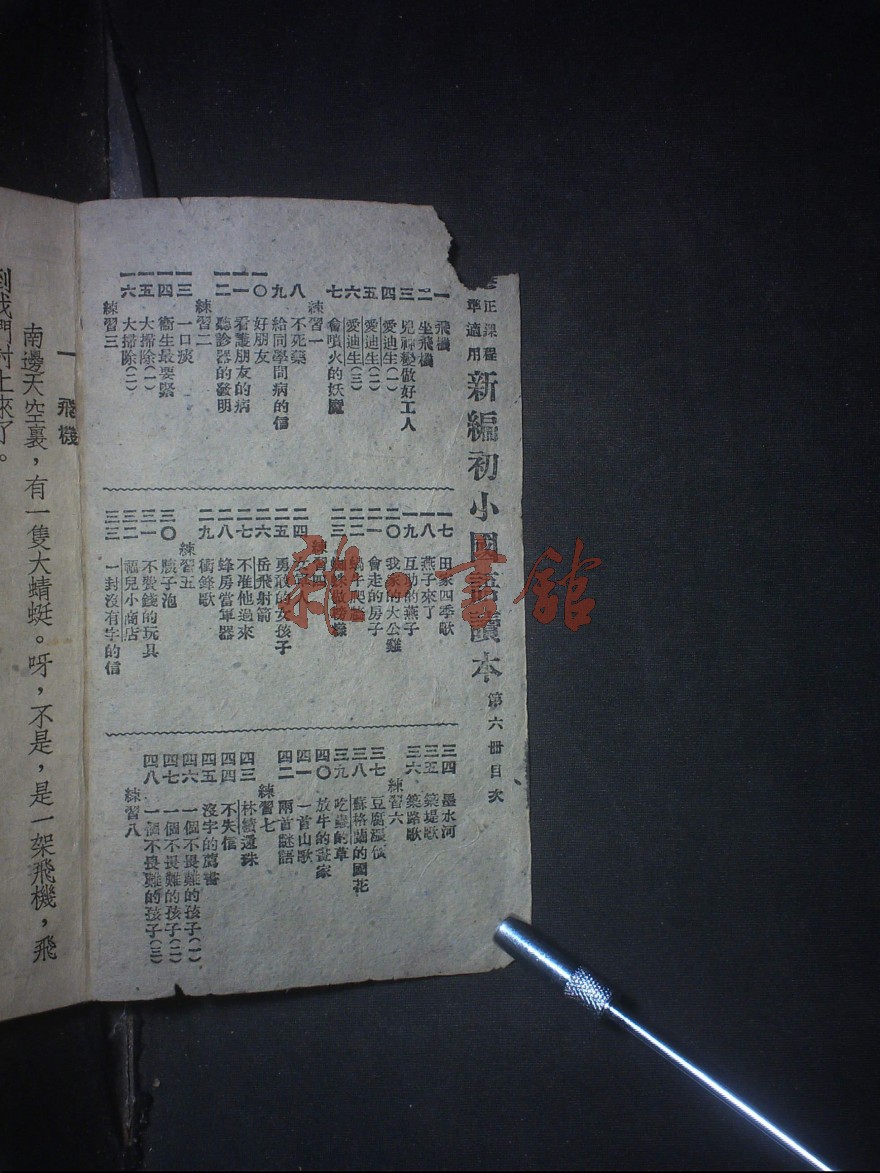 正課程
準適用
新編初小國語讀本 第六冊目次
一 飛機
二 坐飛機
三 兒神變做好工人
四 愛迪生(一)
五 愛迪生(二)
六 愛迪生(三)
七 會噴火的妖魔
練習一
八 不死藥
九 給同學問病的信
一〇 好朋友
一一 看護朋友的病
一二 聽診器的發明
練習二
一三 一口淡
一四 衞生最要緊
一五 大掃除(一)
一六 大掃除(二)
練習三
一七 田家四季歌
一八 燕子來了
一九 互助的燕子
二〇 我家的大公雞
二一 會走的房子
二二 蝸牛爬
二三 蜘蛛做
練習四
二四
二五 勇敢的女孩子
二六 岳飛射箭
二七 不准他過來
二八 蜂房當軍器
二九 衝鋒歌
練習五
三〇 胰子泡
三一 不費錢的玩具
三二 福兒小商店
三三 一封沒有字的信
三四 墨水河
三五 築堤歌
三六 築路歌
練習六
三七 豆腐
三八 蘇格蘭的國花
三九 吃蟲的草
四〇 放牛的畫家
四一 一首山歌
四二 兩首謎語
練習七
四三 林積還珠
四四 不失信
四五 沒字的薦書
四六 一個不畏難的孩子(一)
四七 一個不畏難的孩子(二)
四八 一個不畏難的孩子(三)
練習八
一 飛機
南邊天空裏，有一隻大蜻蜓。呀，不是，是一架飛機，飛
到我們村上來了。
雜·書館